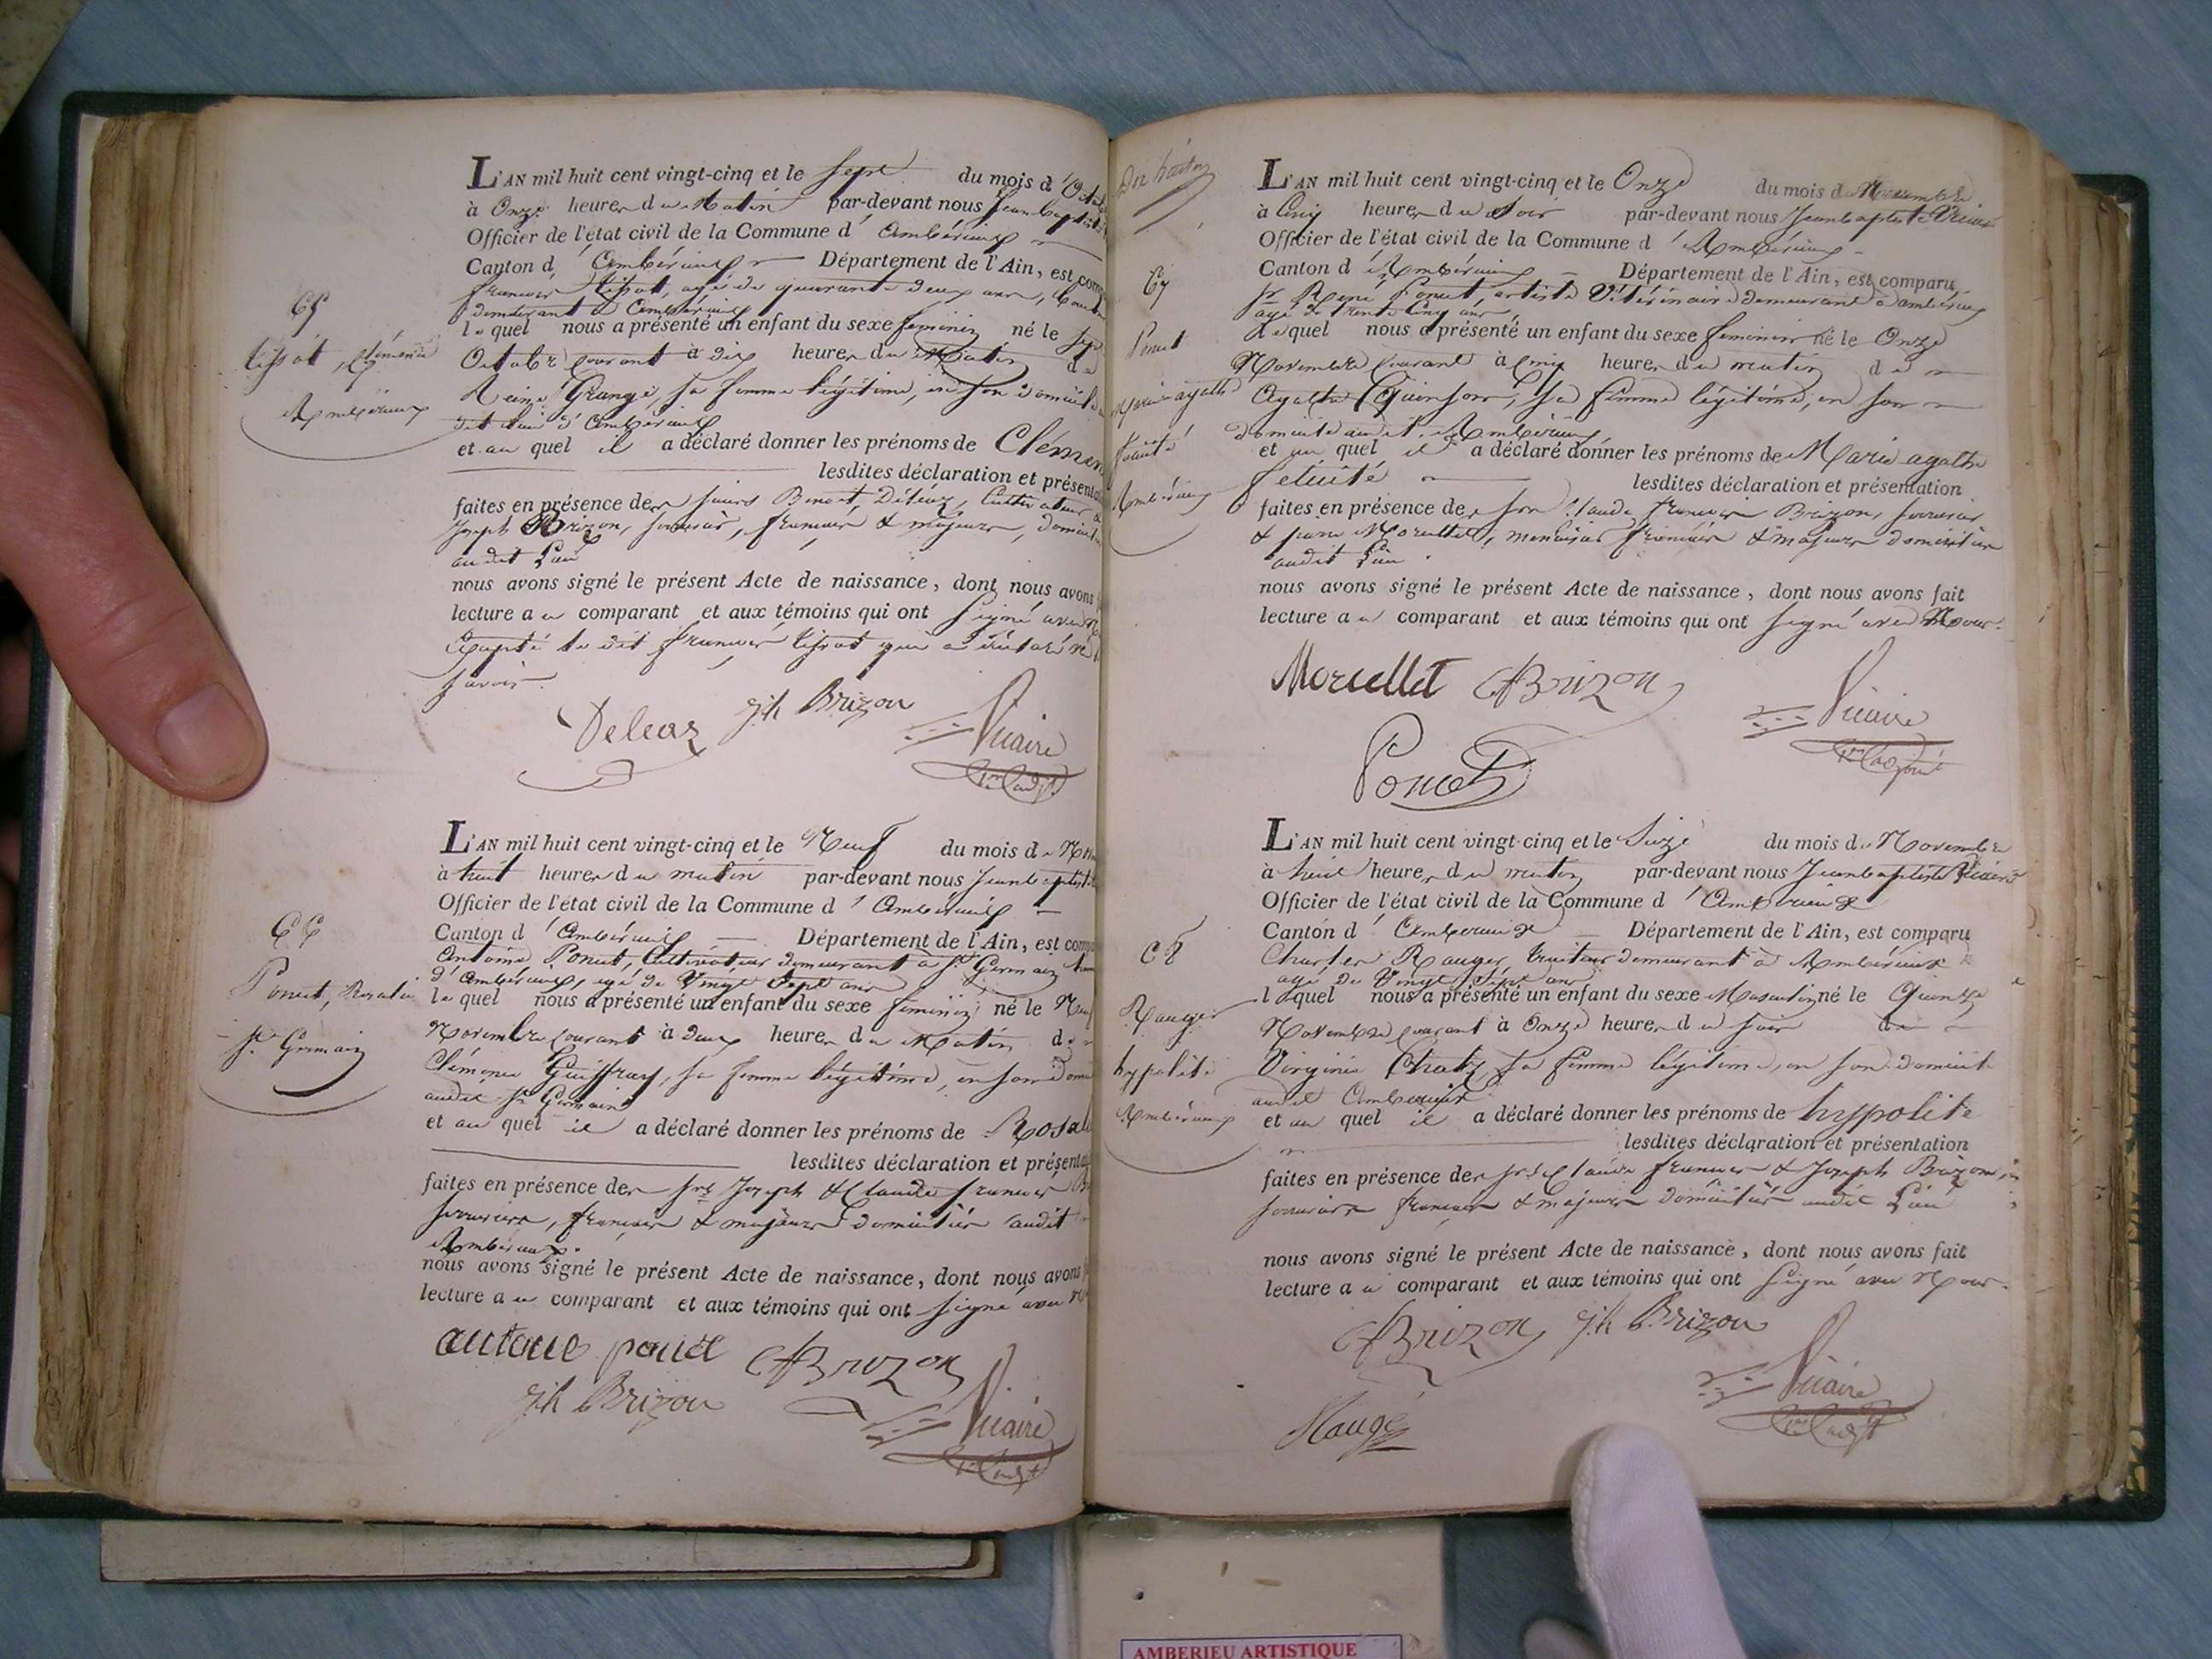 65
tissot, Clémence
Ambérieux
L'AN mil huit cent vingt-cinq et le Sept du mois d'
à Onze heures du Matin par-devant nous Jean baptiste
Officier de l'état civil de la Commune d'Ambérieux
Canton d'Ambérieux Département de l'Ain, est
françois tissot, agé de quarante deux ans,
demeurant a Ambérieux
lequel nous a présenté un enfant du sexe feminin né le
Octobre courant à dix heures du Matin de
Reine Grange, sa femme légitime, en son domicile
dit lieu d'Ambérieux
et au quel il a déclaré donner les prénoms de
lesdites déclaration et
faites en présence des sieurs Benoit Deleaz, Cultivateur
Joseph Brizon, serrurier, français & majeurs,
audit Lieu
nous avons signé le présent Acte de naissance, dont nous avons
lecture au comparant et aux témoins qui ont signé avec
Excepté le dit françois tissot qui a déclaré ne
savoir.
Deleaz jh Brizon Vicaire
66
Poncet, Rosalie
St Germain
L'AN mil huit cent vingt-cinq et le Neuf du mois de
à huit heures du matin par-devant nous Jean baptiste
Officier de l'état civil de la Commune d'Ambérieux
Canton d'Ambérieux Département de l'Ain, est
Antoine Poncet, Cultivateur demeurant a St Germain
d'Ambérieux, agé de Vingt Sept ans
lequel nous a présenté un enfant du sexe feminin né le
Novembre courant à deux heures du Matin de
Clémence Guiffray, sa femme légitime, en son
audit St Germain
et au quel il a déclaré donner les prénoms de
lesdites déclaration et
faites en présence des Srs Joseph & Claude françois
serruriers, français & majeurs domiciliés audit
Ambérieux.
nous avons signé le présent Acte de naissance, dont nous avons
lecture au comparant et aux témoins qui ont signé avec
antoine poncet CfBrizon
jh Brizon Vicaire
67
Poncet
Marie agathe
félicité
Ambérieux
L'AN mil huit cent vingt-cinq et le Onze du mois de Novembre
à Cinq heures du Soir par-devant nous Jean baptiste Vicaire
Officier de l'état civil de la Commune d'Ambérieux
Canton d'Ambérieux Département de l'Ain, est comparu
Sr René Poncet, artiste Vétérinaire demeurant a ambérieux
agé de trente Cinq ans
Lequel nous a présenté un enfant du sexe feminin né le Onze
Novembre courant à cinq heures du matin de
Agathe Quinson, sa femme légitime, en son
domicile audit Ambérieux
et au quel il a déclaré donner les prénoms de Marie agathe
felicité lesdites déclaration et présentation
faites en présence des Srs Claude françois Brizon, serrurier
& Morcellet, menuisier français & majeurs domiciliés
audit Lieu.
nous avons signé le présent Acte de naissance, dont nous avons fait
lecture au comparant et aux témoins qui ont signé avec Nous.
Morcellet CfBrizon
Poncet Vicaire
68
Rauger
hypolite
Ambérieux
L'AN mil huit cent vingt-cinq et le Sieze du mois de Novembre
à huit heures du matin par-devant nous Jean baptiste Vicaire
Officier de l'état civil de la Commune d'Ambérieux
Canton d'Ambérieux Département de l'Ain, est comparu
Charles Rauger, traiteur demeurant a Ambérieux
agé de Vingt Sept ans
lequel nous a présenté un enfant du sexe Masculin né le Quinze
Novembre courant à Onze heures du soir de
Virginie sa femme légitime, en son domicile
audit Ambérieux
et au quel il a déclaré donner les prénoms de hypolite
lesdites déclaration et présentation
faites en présence des Srs Claude françois & Joseph Brizon,
serruriers français & majeurs domiciliés audit Lieu
nous avons signé le présent Acte de naissance, dont nous avons fait
lecture au comparant et aux témoins qui ont signé avec Nous.
CfBrizon jh Brizon
Vicaire
AMBERIEU ARTISTIQUE